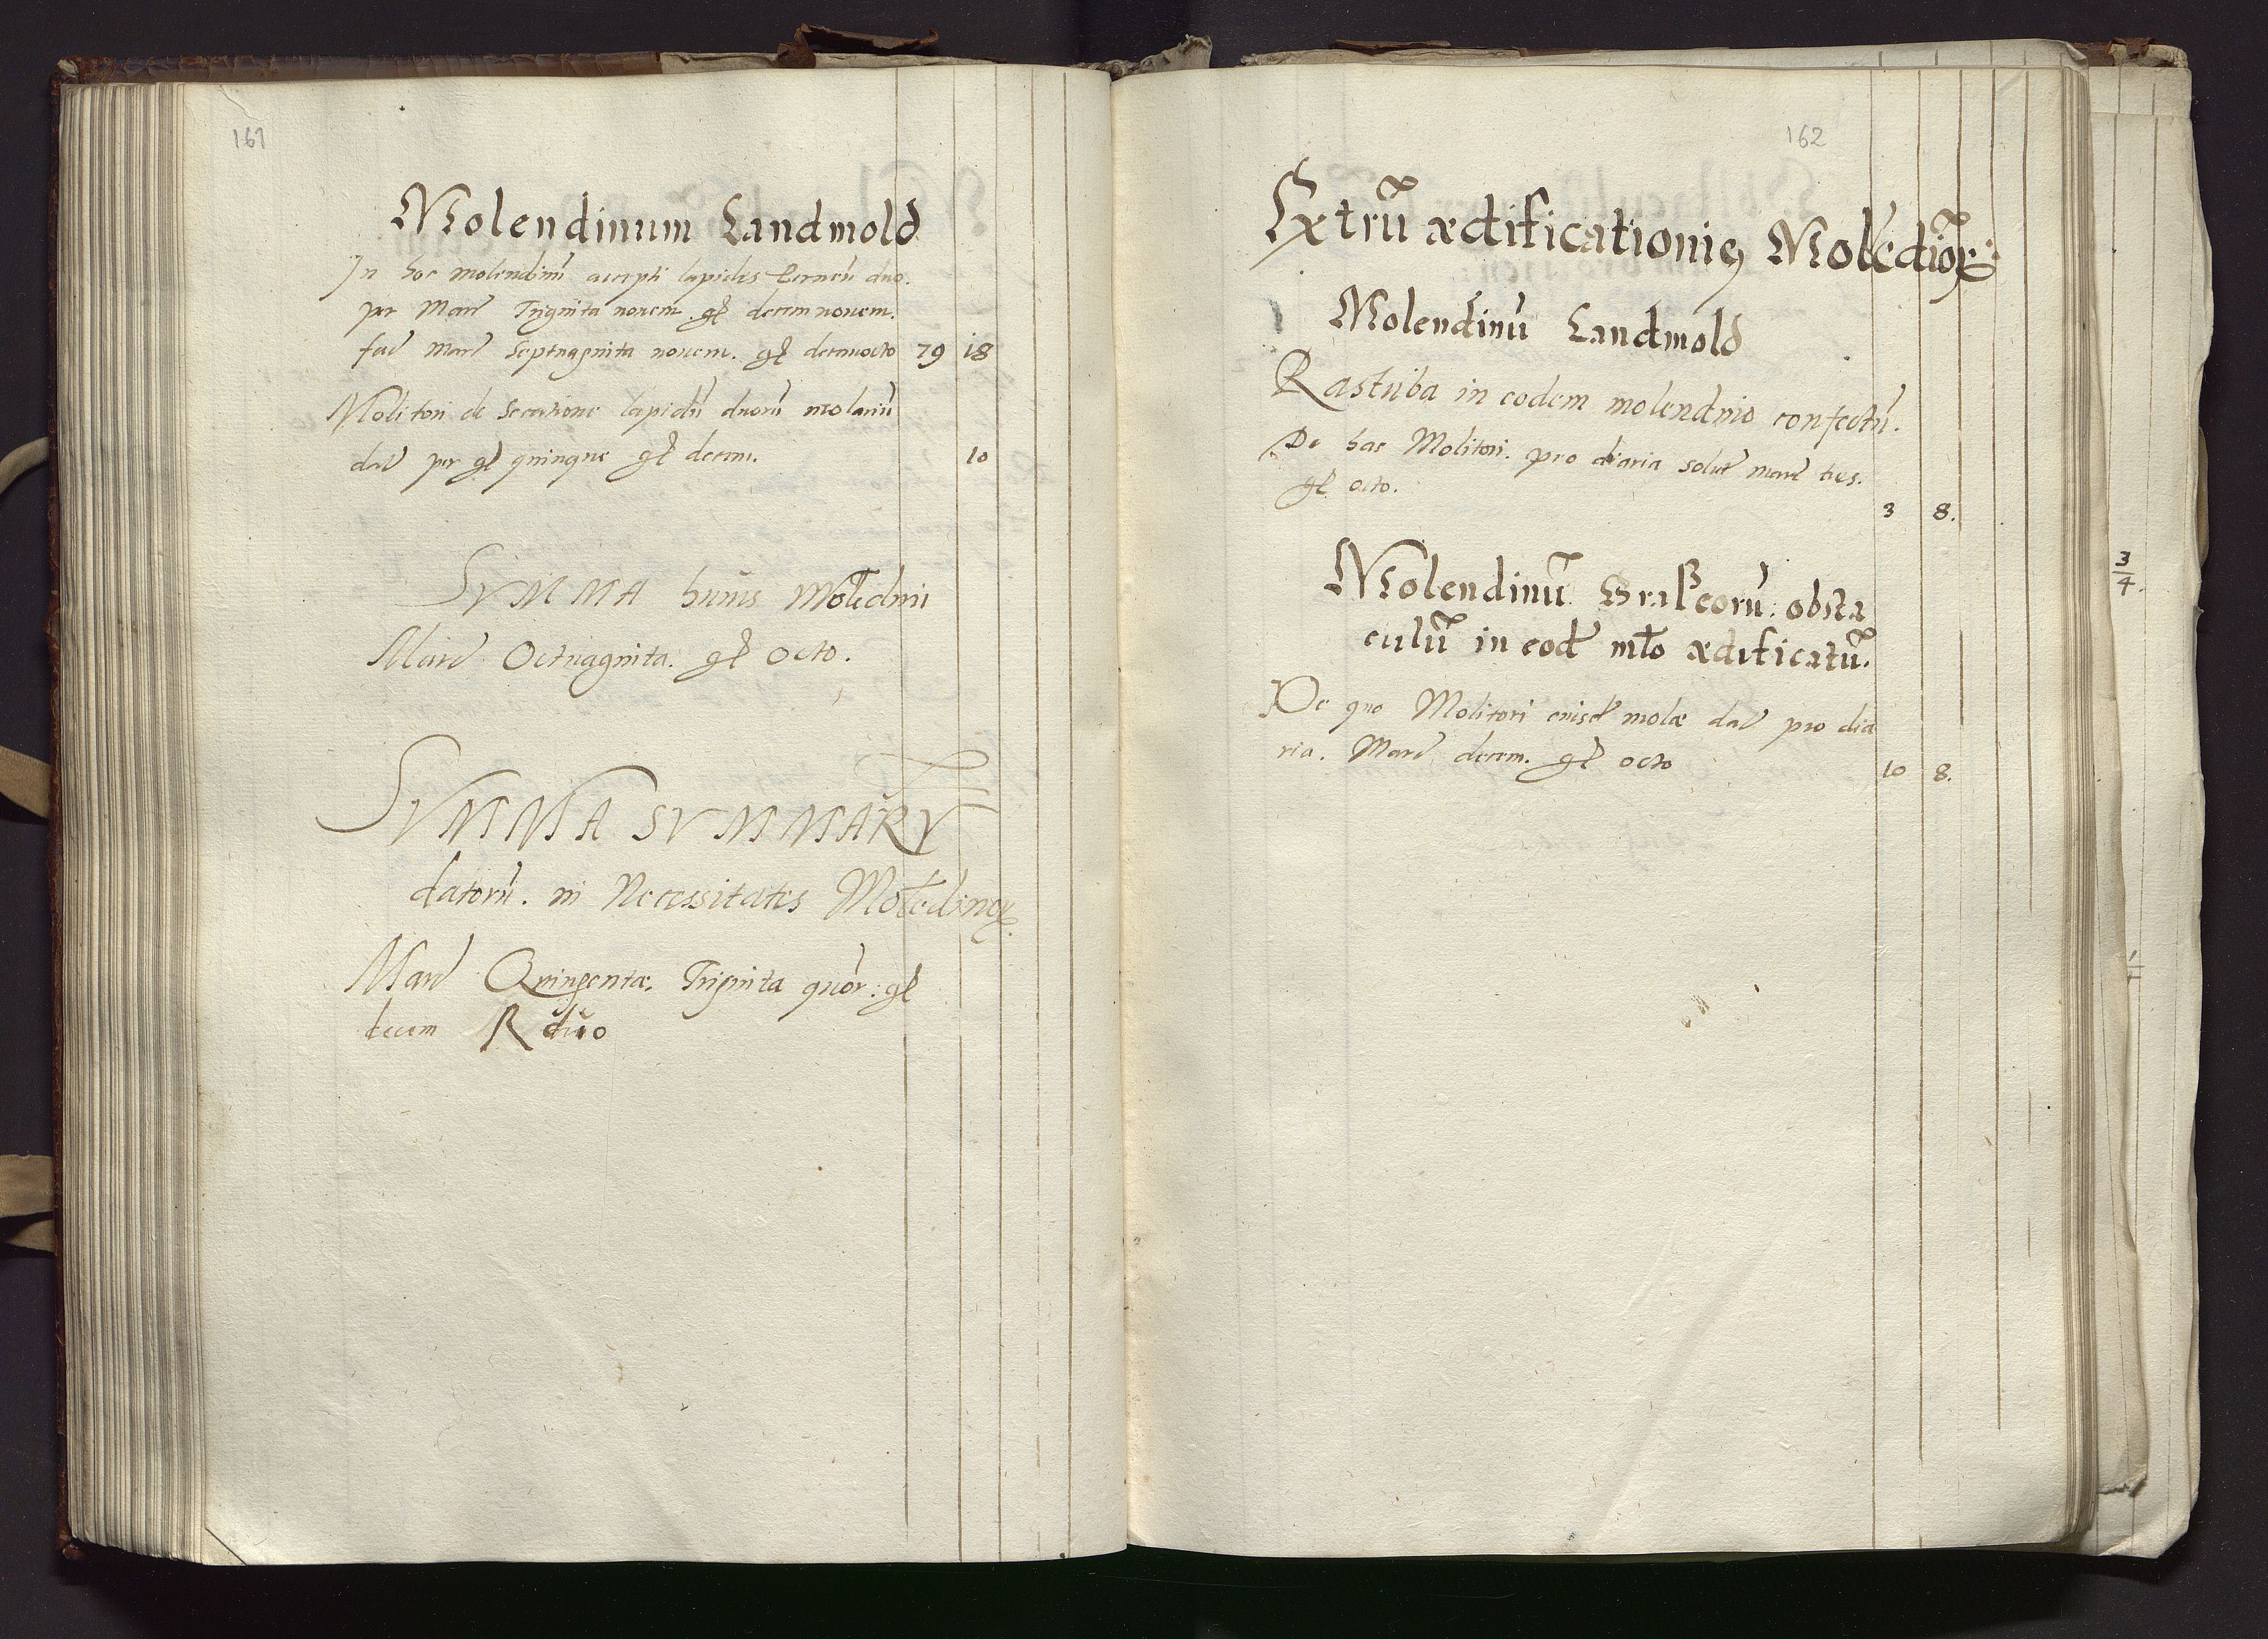 161
Molendinum Landmold
In hoc molendinū accepti lapides Ferneū duo.
per Marc Trignita novem. gł decemnovem.
fac marc Septuaginta novem. gł decemocto 79 18
Molitori de Secatione lapidū duorū molariū
dat per gł quinque gł decem. 10
SVMMA huius Moledini
Marc Octuaginta. gł Octo.
SVMMA SVMMARV
datorū. in Necessitates Moledinoꝝ.
Marc Quingentæ. Triginta quōr: gł
decem R duo
162
Extrū ædificationis Moledinoꝝ
Molendinū Landmold
Rastuba in eodem molendino confectū.
De hac Molitori. pro diaria Solut marc tres.
gł octo. 3 8.
Molendinū Braseorū: obsta
culū in eod mło ædificatū.
De quo Molitori eiusd molæ dat pro dia
ria. Marc decem. gł octo 10 8.
3/4.